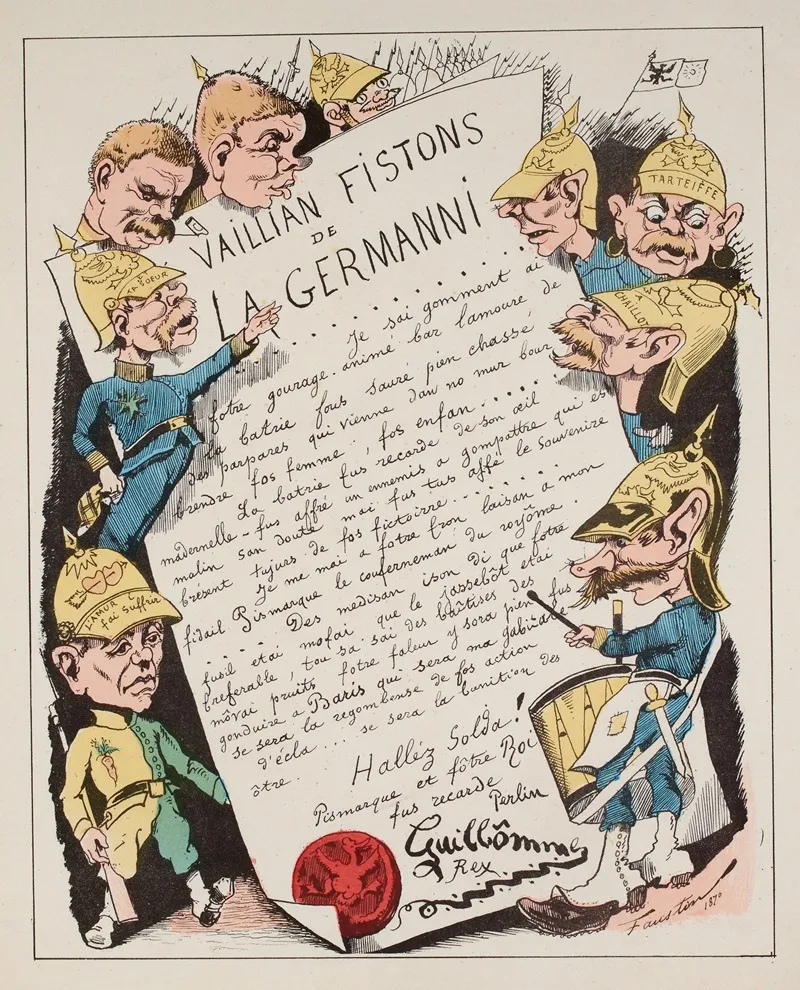 VAILLIAN FISTONS
DE
LA GERMANNI
Je sai gomment ai
fotre gourage. animé bar l'amoure de
la batrie fous sauré pien chassé
des parpares qui vienne dan no mur bour
brendre fos femme, fos enfan.....
La batrie fus recarde de son œil
madernelle - fus affré un ennemis a gompattre qui es
malin san doute mai fus tus affé le souvenire
brésent tujurs de fos fictoirre........
Je me mai a fotre tron laisan a mon
fidail Pismarque le couferneman du royôme
...... Des medisan ison di que fotre
fusil etai mofai, que le jassebôt etai
breferable, tou sa sai des baûtises des
môvai pruits fôtre faleur y sora pien fus
gonduire a Baris qui sera ma gabidale
se sera la regombense de fos action
d'écla ... se sera la bunition des
ôtre.
Halléz Solda!
Pismarque et fôtre Roi
fus recarde
Perlin
Guillômme
Rex
TA SOEUR
TARTEIFFE
A CHAILLOT
L'AMUR
fai Suffrir
Fauston 1870